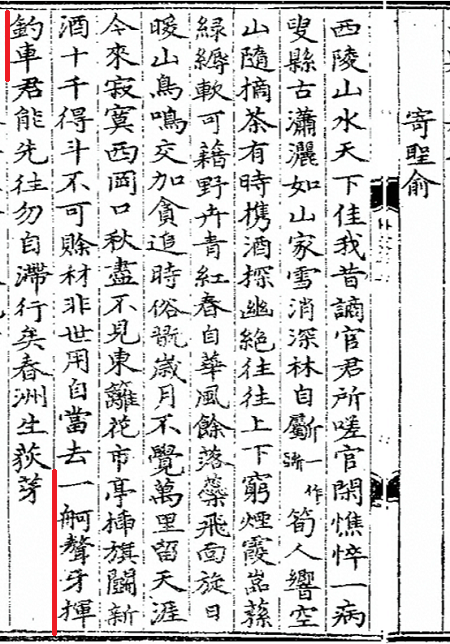 寄聖俞
西陵山水天下佳我昔謫官君所嗟官閑憔悴一病
叟縣古瀟灑如山家雪消深林自斸一作筍人響空
山隨摘茶有時攜酒探幽絕往往上下窮煙霞嵓蓀
綠縟軟可藉野卉青紅春自華風餘落蘂飛面旋日
暖山鳥鳴交加貪追時俗翫歲月不覺萬里留天涯
今來寂寞西岡口秋盡不見東籬花市亭插旗鬭新
酒十千得斗不可賒材非世用自當去一舸聱牙揮
釣車君能先往勿自滯行矣春洲生荻芽